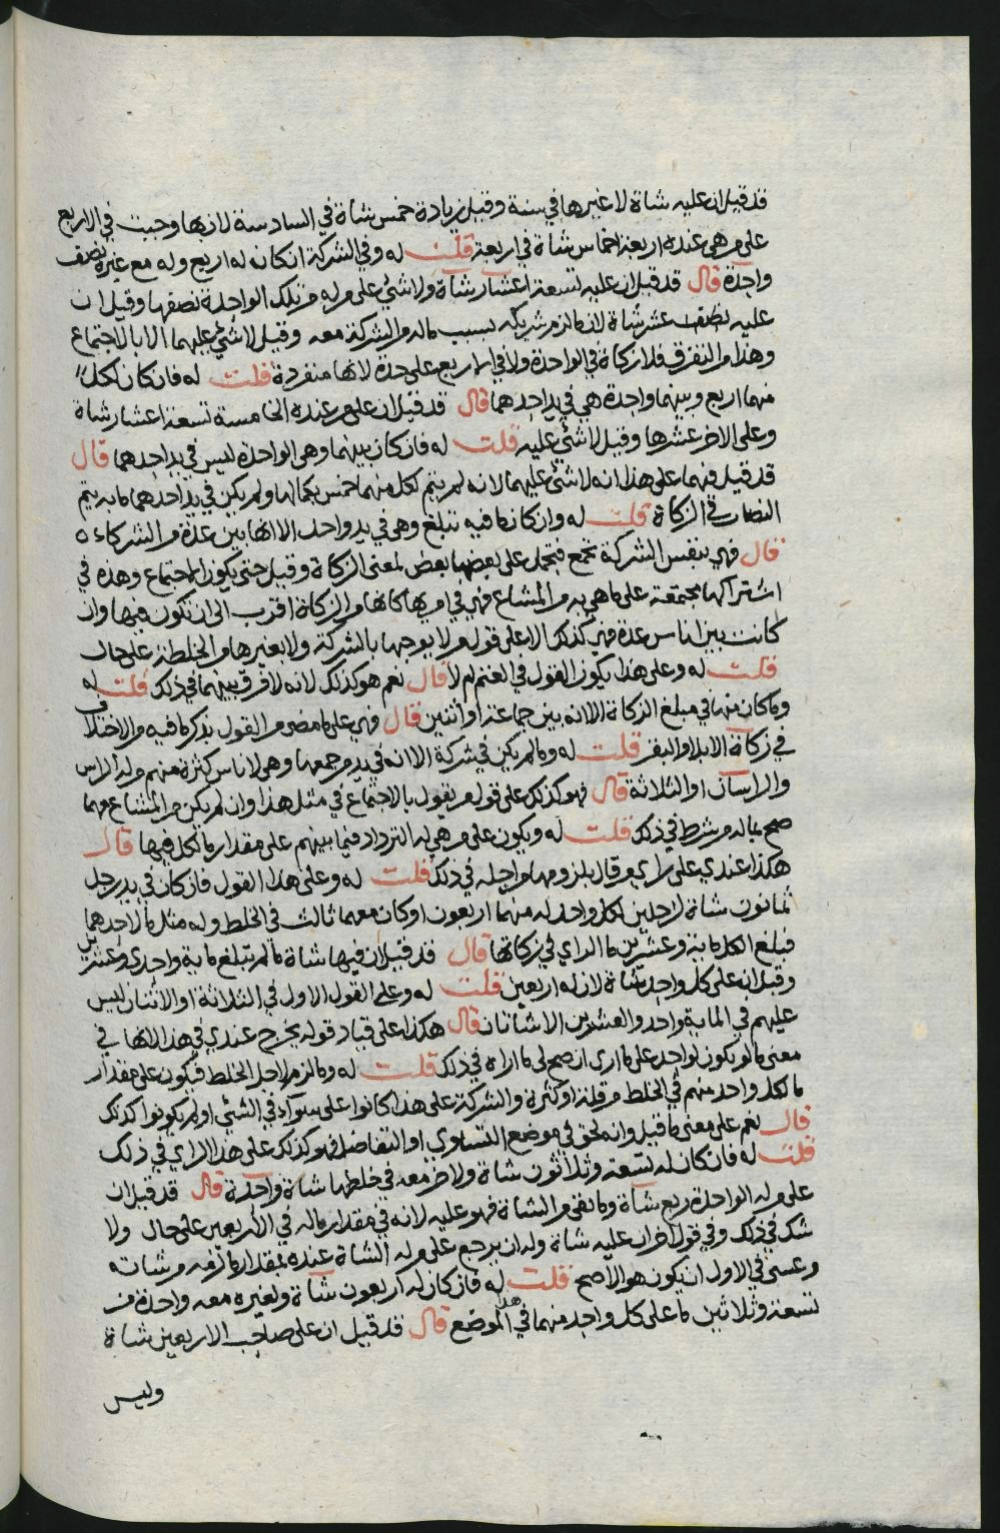 قد قيل ان عليه شاة لا غيرها في سنة وقيل زيادة خمس شاة في السادسة لانها وجبت في الاربع
على من هي عنده اربعة اخماس شاة في اربعة قلت له وفي الشركة ان كان له اربع وله مع غيره نصف
واحدة قال قد قيل ان عليه تسعة اعشار شاة ولا شئ على من له من تلك الواحدة نصفها وقيل ان
عليه نصف عشر شاة لانه ما لزم شريكه بسبب ماله من الشركة معه وقيل لا شئ عليهما الا بالاجتماع
وهذا من التفرق فلا زكاة في الواحدة ولا في الاربع على حدة لانها منفردة قلت له فان كان لكل
منهما اربع وبينهما واحدة هي في يد احدهما قال قد قيل ان على من عنده الخامسة تسعة اعشار شاة
وعلى الاخر عشرها وقيل لا شئ عليه قلت له فان كان بينهما وهي الواحدة ليس في يد احدهما قال
قد قيل فيهما على هذا انه لا شئ عليهما لانه لم يتم لكل منهما خمس بكمالها ولم يكن في يد احدهما ما به يتم
النصاب في الزكاة قلت له وان كان ما فيه تبلغ وهي في يد واحد الا انها بين عدة من الشركاء ه
قال فهي بنفس الشركة تجمع فتحمل على بعضها بعض لمعنى الزكاة وقيل حتى يكون الاجتماع وهذه في
اشتراكها مجتمعة على ما هي به من المشاع فهي في امرها كانها من الزكاة اقرب الى ان تكون فيها وان
كانت بين اناس عدة فهي كذلك الا على قول من لا يوجبها بالشركة ولا بغيرها من الخلطة على حال
قلت له وعلى هذا يكون القول في الغنم ام لا قال نعم هو كذلك لانه لا فرق بينهما في ذلك قلت له
وما كان منها في مبلغ الزكاة الا انه بين جماعة او اثنين قال فهي على ما مضى من القول بذكر ما فيه من الاختلاف
في زكاة الابل او البقر قلت له وما لم يكن في شركة الا انه في يد من جمعها وهي لاناس كثرة منهم من له الراس
والراسان او الثلاثة قال فهو كذلك على قول من يقول بالاجتماع في مثل هذا وان لم يكن من المشاع مهما
صح ماله من شرط في ذلك قلت له ويكون على من هي له التردد فيما بينهم على مقدار ما لكل فيها قال
هكذا عندي على راي من قال بلزومها من اجله في ذلك قلت له وعلى هذا القول فان كان في يد رجل
ثمانون شاة لرجلين لكل واحد له منهما اربعون او كان معهما ثالث في الخلط وله مثل ما لاحدهما
فبلغ الكل ماية وعشرين ما الراي في زكاتها قال قد قيل ان فيها شاة ما لم تبلغ ماية واحدى وعشرين
وقيل ان على كل واحد شاة لان له اربعين قلت له وعلى القول الاول في الثلاثة او الاثنان ليس
عليهم في الماية واحد والعشرين الا شاتان قال هكذا على قياد قوله يخرج عندي في هذا لانها في
معنى ما لو يكون لواحد على ما ارى ان صح لي ما اراه في ذلك قلت له وما لزم لاجل الخلط فيكون على مقدار
ما لكل واحد منهم في الخلط من قلة او كثرة والشركة على هذا كانوا على سوآء في الشئ او لم يكونوا كذلك
قال نعم على معنى ما قيل وانه لحق في موضع التساوي او التفاضل فهو كذلك على هذا الراي في ذلك
قلت له فان كان له تسعة وثلاثون شاة ولاخر معه في خلطها شاة واحدة قال قد قيل ان
على من له الواحدة ربع شاة وما بقي من الشاة فهو عليه لانه في مقدار ماله في الاربعين على حال ولا
شك في ذلك وفي قول اخر ان عليه شاة وله ان يرجع على من له الشاة عنده بمقدار ما لزمه من شاته
وعسى في الاول ان يكون هو الاصح قلت له فان كان له اربعون شاة ولغيره معه واحدة من
تسعة وثلاثين ما على كل واحد منهما في هذا الموضع قال قد قيل ان على صاحب الاربعين شاة
وليس